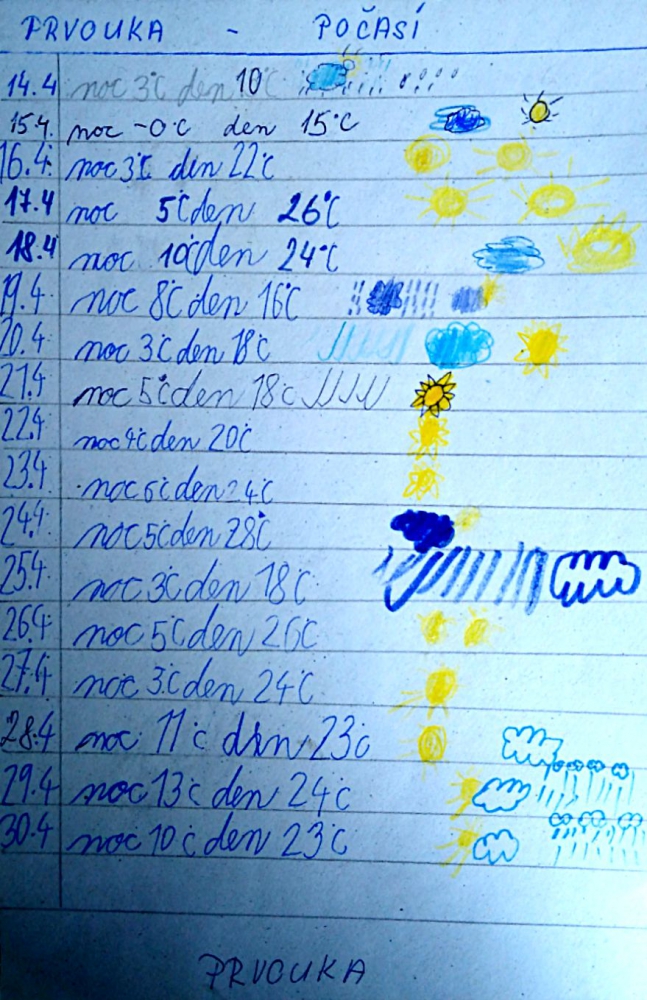 PRVOUKA - POČASÍ
14.4 noc 3°C den 10°C
15.4. noc -0°C den 15°C
16.4. noc 3°C den 22°C
17.4 noc 5°C den 26°C
18.4 noc 10°C den 24°C
19.4 noc 8°C den 16°C
20.4 noc 3°C den 18°C
21.4 noc 5°C den 18°C
22.4 noc 4°C den 20°C
23.4 noc 6°C den 24°C
24.4 noc 5°C den 28°C
25.4 noc 3°C den 18°C
26.4 noc 5°C den 26°C
27.4 noc 3°C den 24°C
28.4 noc 11°C den 23°C
29.4 noc 13°C den 24°C
30.4 noc 10°C den 23°C
PRVOUKA